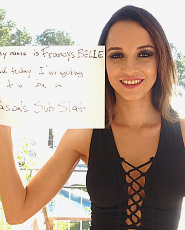 my name is Francys BELLE
and today I'm going
to be a
Jason's Sub Slut